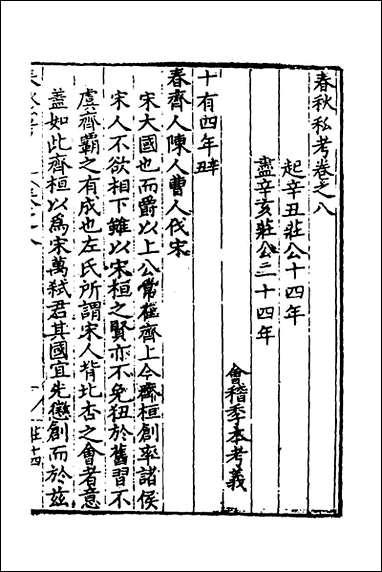 春秋私考卷之八
起辛丑莊公十四年
盡辛亥莊公二十四年
會稽季本考義
十有四年辛丑
春齊人陳人曹人伐宋
宋大國也而爵以上公常在齊上今齊桓創率諸侯
宋人不欲相下雖以宋桓之賢亦不免狃於舊習不
虞齊霸之有成也左氏所謂宋人背北杏之會者意
蓋如此齊桓以為宋萬弒君其國宜先懲創而於茲